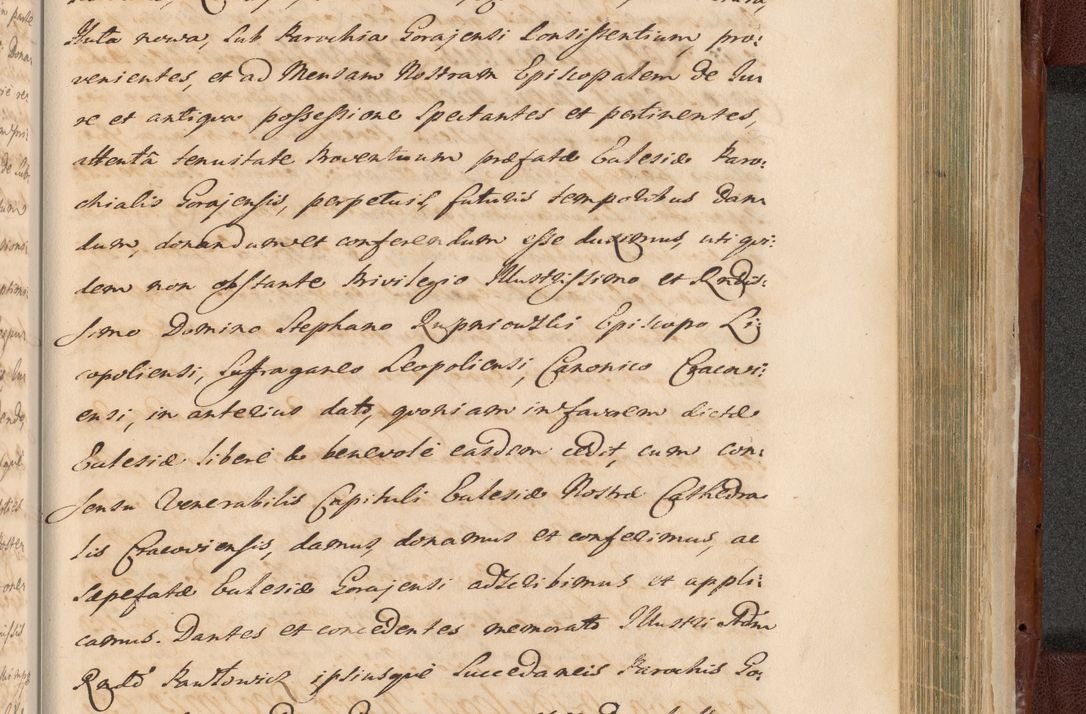 Huta nowa, sub Parochia Gorajensi Consistentium, pro:
venientes, et ad Mensam Nostram Episcopalem de Ju
re et antiqua possessione spectantes et pertinentes,
attentâ tenuitate Proventuum præfatæ Eclesiæ Paro:
chialis Gorajensis, perpetuis, futuris temporibus Dan
dum, donandum et conferendum esse duximus, uti qvi:
dem non obstante Privilegio Illustrissimo et Rndis:
simo Domino Stephano Rupniowski Episcopo Li:
vopoliensi, Suffraganeo Leopoliensi, Canonico Cracovi:
ensi, in anterius dato, qvoniam in favorem dictæ
Eclesiæ liberè & benevolè easdem cedit, cum con:
sensu Venerabilis Capituli Eclesiæ Nostræ Cathedra
lis Cracoviensis, damus, donamus et conferimus, ac
sæpefatæ Eclesiæ Gorajensi adscribimus et appli:
camus. Dantes et concedentes memorato Illustri Adm
Rndo Pawlowicz ipsiusqvè Succedaneis Parochis Go: